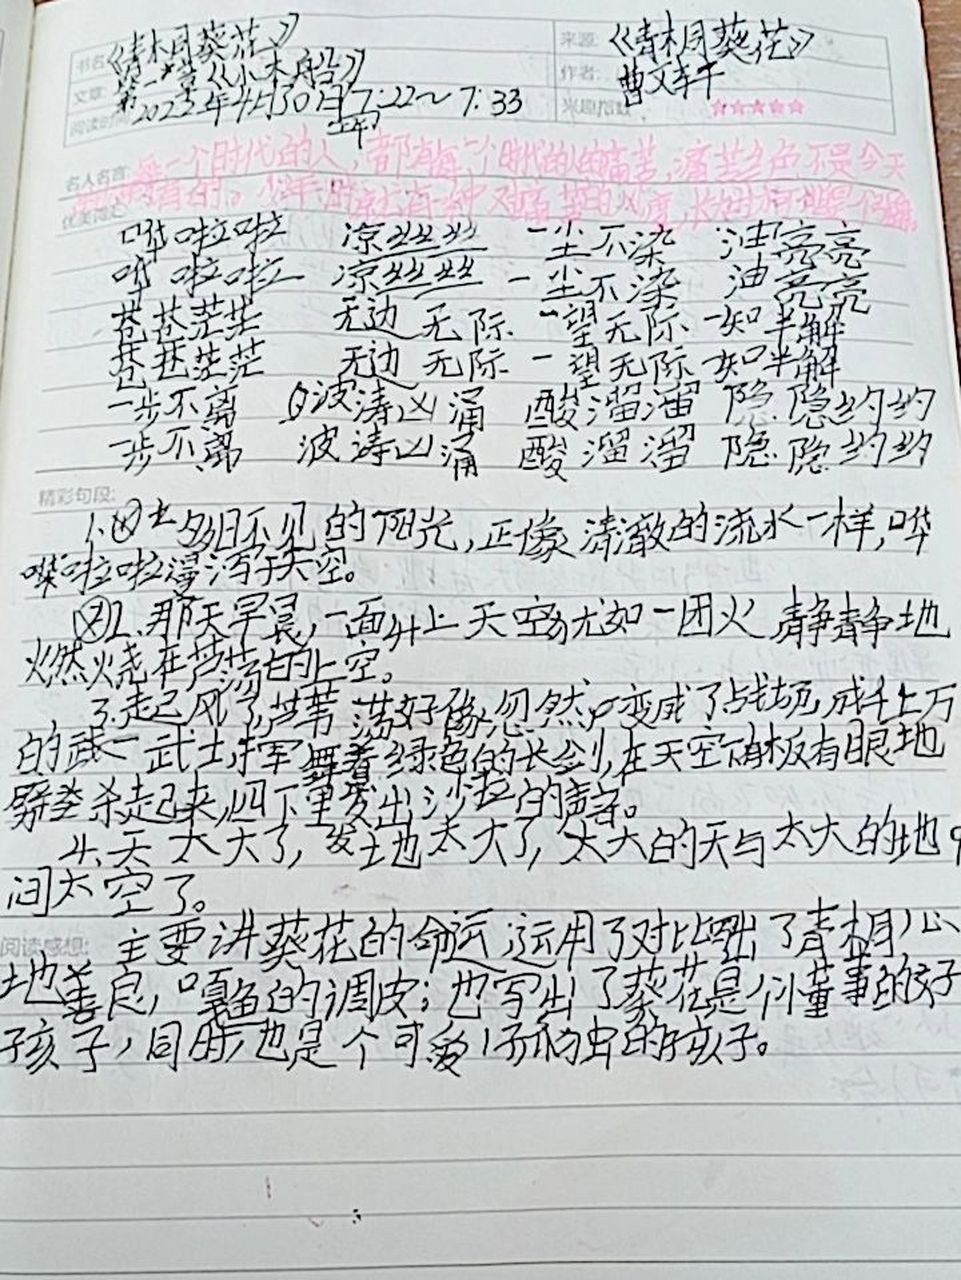 书名 《青桐葵花》 来源: 《青桐葵花》
文章: 第一章《小木船》 作者: 曹文轩
阅读时间 2023年4月30日 7:22～7:33 兴趣指数 ☆☆☆☆☆
上午
名人名言: 每一个时代的人,都有每一个时代的人的痛苦,痛苦绝不是今天
才有的。少年时就有一种对痛苦的风度,长大时才可能是个强者
哗啦啦 凉丝丝 一尘不染 油亮亮
哗啦啦 凉丝丝 一尘不染 油亮亮
苍苍茫茫 无边无际 一望无际 一知半解
苍苍茫茫 无边无际 一望无际 一知半解
一步不离 波涛凶涌 酸溜溜 隐隐约约
一步不离 波涛凶涌 酸溜溜 隐隐约约
精彩句段:
1. 的阳光,正像清澈的流水一样,哗
啦啦漫泻于天空。
2.那天早晨,一面升上天空,尤如一团火静静地
燃烧在芦荡的上空。
3.起风了,芦苇荡好像忽然变成了战场,成千上万
的武一武士,挥舞着绿色的长剑,在天空下有板有眼地
劈杀起来,四下里发出沙拉的声音。
4.天太大了,地太大了,太大的天与太大的地
间太空了。
阅读感想: 主要讲葵花的命运,运用了对比写出了青桐心
地善良,嘎鱼的调皮;也写出了葵花是个懂事的孩子
孩子,同时,也是个可爱 孤独的孩子。